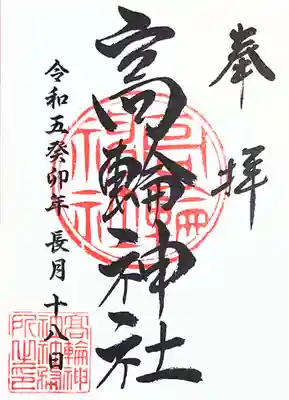 奉拝
高輪神社
令和五癸卯年 長月 十八日
高輪神社
高輪神
社神務
所之印